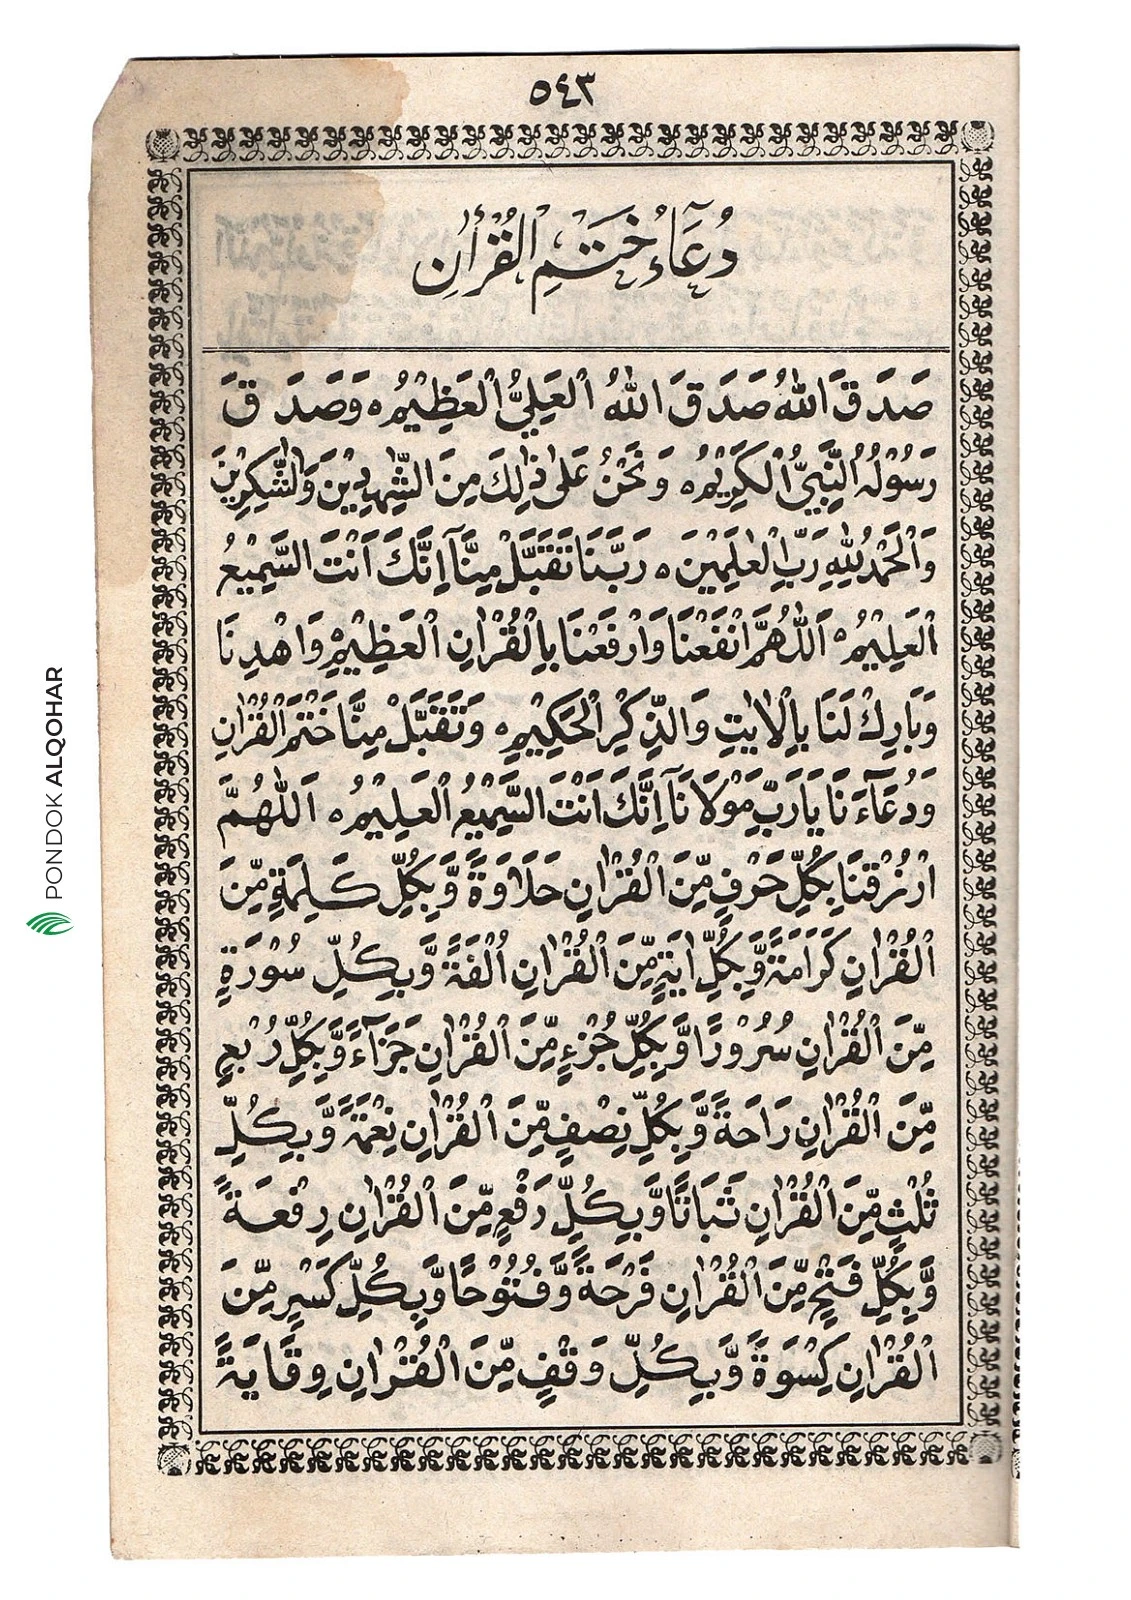 ٥٤٣
دُعَاءُ خَتَمِ الْقُرْأٰنِ
صَدَقَ اللّٰهُ صَدَقَ اللّٰهُ الْعَلِيُّ الْعَظِيْمُ ه وَصَدَقَ
رَسُوْلُهُ النَّبِيُّ الْكَرِيْمُ ه وَنَحْنُ عَلٰى ذٰلِكَ مِنَ الشّٰهِدِيْنَ وَالشّٰكِرِيْنَ
وَالْحَمْدُ لِلّٰهِ رَبِّ الْعٰلَمِيْنَ ه رَبَّنَا تَقَبَّلْ مِنَّآ اِنَّكَ اَنْتَ السَّمِيْعُ
الْعَلِيْمُ ه اَللّٰهُمَّ انْفَعْنَا وَارْفَعْنَا بِالْقُرْاٰنِ الْعَظِيْمِ ه وَاهْدِنَا
وَبَارِكْ لَنَا بِالْاٰيٰتِ وَالذِّكْرِ الْحَكِيْمِ ه وَتَقَبَّلْ مِنَّا خَتْمَ الْقُرْاٰنِ
وَدُعَآءَنَا يَارَبِّ مَوْلَانَآ اِنَّكَ اَنْتَ السَّمِيْعُ الْعَلِيْمُ ه اَللّٰهُمَّ
ارْزُقْنَا بِكُلِّ حَرْفٍ مِّنَ الْقُرْاٰنِ حَلَاوَةً وَّبِكُلِّ كَلِمَةٍ مِّنَ
الْقُرْاٰنِ كَرَامَةً وَّبِكُلِّ اٰيَةٍ مِّنَ الْقُرْاٰنِ اُلْفَةً وَّبِكُلِّ سُوْرَةٍ
مِّنَ الْقُرْاٰنِ سُرُوْرًا وَّبِكُلِّ جُزْءٍ مِّنَ الْقُرْاٰنِ جَزَآءً وَّبِكُلِّ رُبْعٍ
مِّنَ الْقُرْاٰنِ رَاحَةً وَّبِكُلِّ نِصْفٍ مِّنَ الْقُرْاٰنِ نِعْمَةً وَّبِكُلِّ
ثُلُثٍ مِّنَ الْقُرْاٰنِ ثَبَاتًا وَّبِكُلِّ رَفْعٍ مِّنَ الْقُرْاٰنِ رِفْعَةً
وَّبِكُلِّ فَتْحٍ مِّنَ الْقُرْاٰنِ فَرْحَةً وَّفُتُوْحًا وَّبِكُلِّ كَسْرٍ مِّنَ
الْقُرْاٰنِ كِسْوَةً وَّبِكُلِّ وَقْفٍ مِّنَ الْقُرْاٰنِ وِقَايَةً
PONDOK ALQOHAR